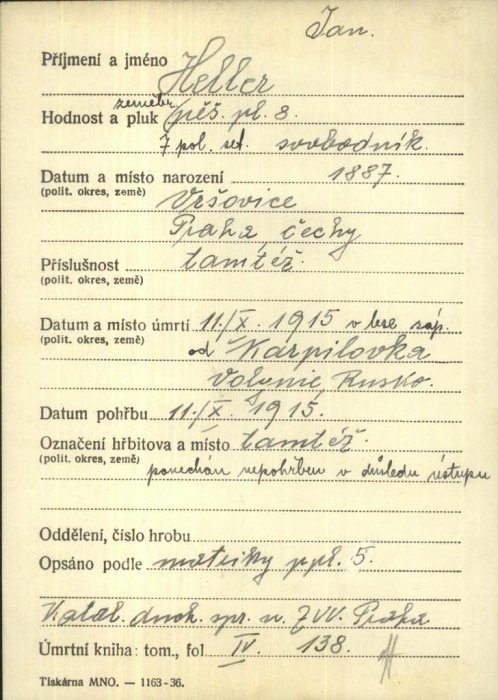 Jan.
Příjmení a jméno Heller
zeměbr.
Hodnost a pluk pěš. pl. 8.
7 pol. set. svobodník.
Datum a místo narození 1887.
(polit. okres, země) Vršovice
Praha čechy
Příslušnost tamtéž.
(polit. okres, země)
Datum a místo úmrtí 11./X. 1915 v lese záp.
(polit. okres, země) od Karpilovka
Volynie, Rusko.
Datum pohřbu 11./X. 1915.
Označení hřbitova a místo tamtéž.
(polit. okres, země) ponechán nepohřben v důsledku ústupu
Oddělení, číslo hrobu
Opsáno podle matriky ppl. 5.
duch. spr. u ZVV. Praha
Úmrtní kniha: tom., fol IV. 138.
Tiskárna MNO. — 1163-36.